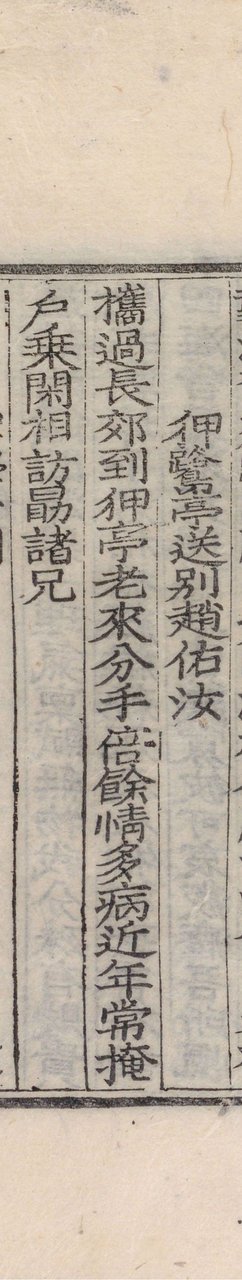 狎鷺亭送別趙佑汝
攜過長郊到狎亭老來分手倍餘情多病近年常掩
戶乗閑相訪勗諸兄